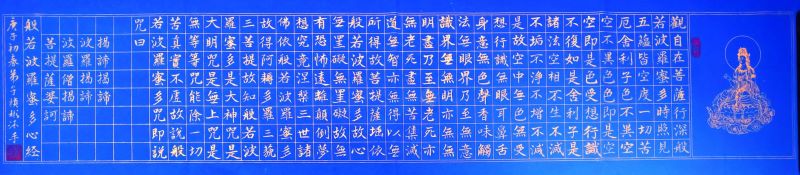 觀自在菩薩行深般
若波羅蜜多時照見
五蘊皆空度一切苦
厄舍利子色不異空
空不異色色即是空
空即是色受想行識
亦復如是舍利子是
諸法空相不生不滅
不垢不淨不增不減
是故空中無色無受
想行識無眼耳鼻舌
身意無色聲香味觸
法無眼界乃至無意
識界無無明亦無無
明盡乃至無老死亦
無老死盡無苦集滅
道無智亦無得以無
所得故菩提薩埵依
般若波羅蜜多故心
無罣礙無罣礙故無
有恐怖遠離顛倒夢
想究竟涅槃三世諸
佛依般若波羅蜜多
故得阿耨多羅三藐
三菩提故知般若波
羅蜜多是大神咒是
大明咒是無上咒是
無等等咒能除一切
苦真實不虛故說般
若波羅蜜多咒即說
咒曰
揭諦揭諦
波羅揭諦
波羅僧揭諦
菩提薩婆訶
般若波羅蜜多心經
庚子初春弟子